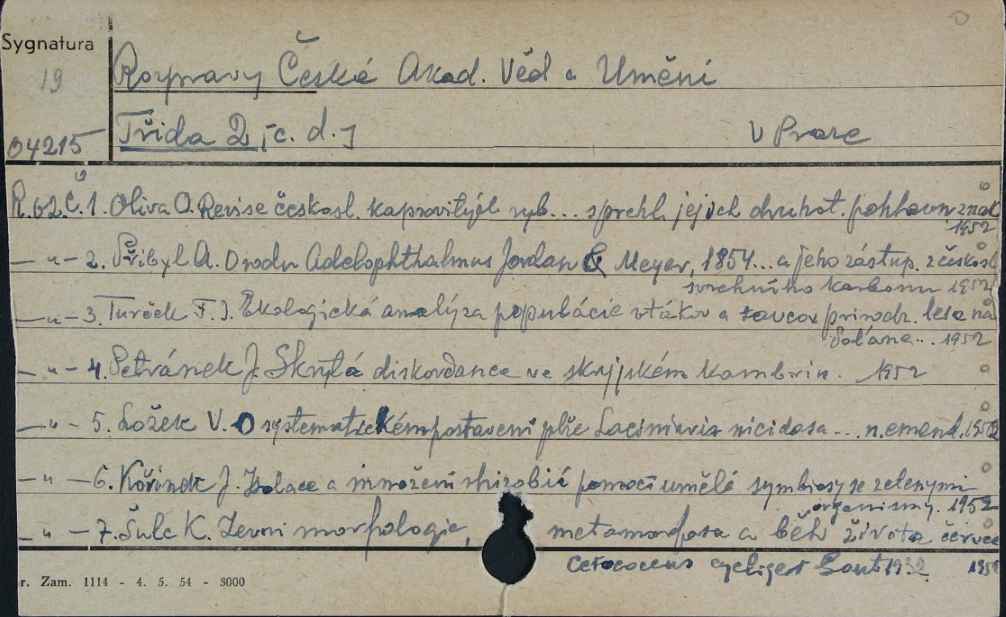 Sygnatura
19
Rozpravy České Akad. Věd a Umění
04215
Třida 2, [c. d.]
v Praze
R. 62. Č. 1. Oliva O. Revise českosl. kaprovitých ryb... s přehl. jejich druhot. pohlavn. znak
1952
— „ — 2. Přibyl A. O rodu Adelophthalmus Jordan & Meyer, 1854... a jeho zástup. z českosl
svrchního karbonu 1952
— „ — 3. Turček F. J. Ekologická analýza populácie vtákov a savcov prirodz. lesa na
Polane... 1952
— „ — 4. Petránek J. Skrytá diskordance ve skryjském kambriu. 1952
— „ — 5. Ložek V. O systematickém postavení plže Laciniaria nitidosa... n. emend. 1952
— „ — 6. Kořínek J. Isolace a množení rhizobií pomocí umělé symbiosy se zelenými
organismy. 1952
— „ — 7. Šulc K. Zevní morfologie, metamorfosa a běh života červce
Cerococcus cycliger 1932 195
r. Zam. 1114 - 4. 5. 54 - 3000